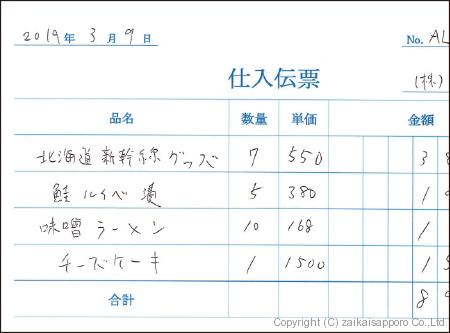 2019年 3月 9日 No. AL
仕入伝票 (株)
品名 数量 単価 金額
北海道新幹線グッズ 7 550 3
鮭ルイベ漬 5 380 1
味噌ラーメン 10 168 1
チーズケーキ 1 1500 1
合計 8
Copyright (C) zaikaisapporo Co.,Ltd.